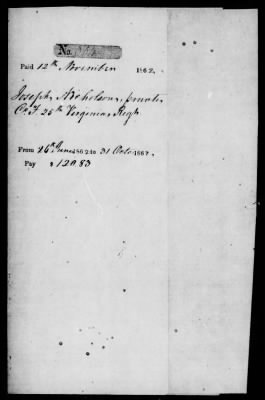 No.
Paid 12th November 1862.
Joseph Nicholson, private,
Co. F. 25th Virginia Regt
From 26th June 1862 to 31 Octo. 1862.
Pay $ 120.83